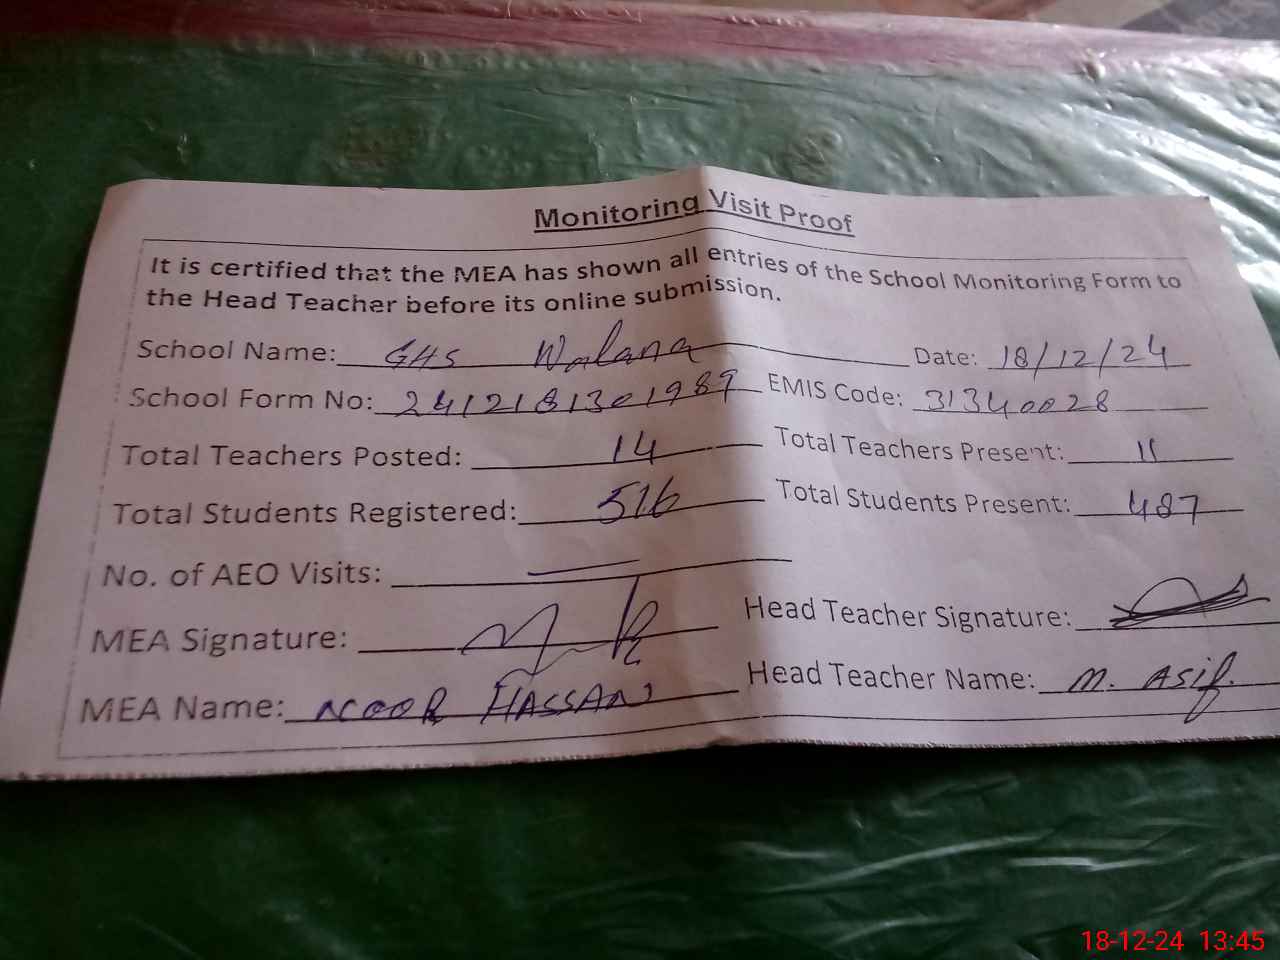 Monitoring Visit Proof
It is certified that the MEA has shown all entries of the School Monitoring Form to
the Head Teacher before its online submission.
School Name: GHS Walana Date: 18/12/24
School Form No: 241218131989 EMIS Code: 31340028
Total Teachers Posted: 14 Total Teachers Present: 11
Total Students Registered: 516 Total Students Present: 487
No. of AEO Visits: —
MEA Signature: Head Teacher Signature:
MEA Name: NOOR HASSAN Head Teacher Name: M. Asif.
18-12-24 13:45